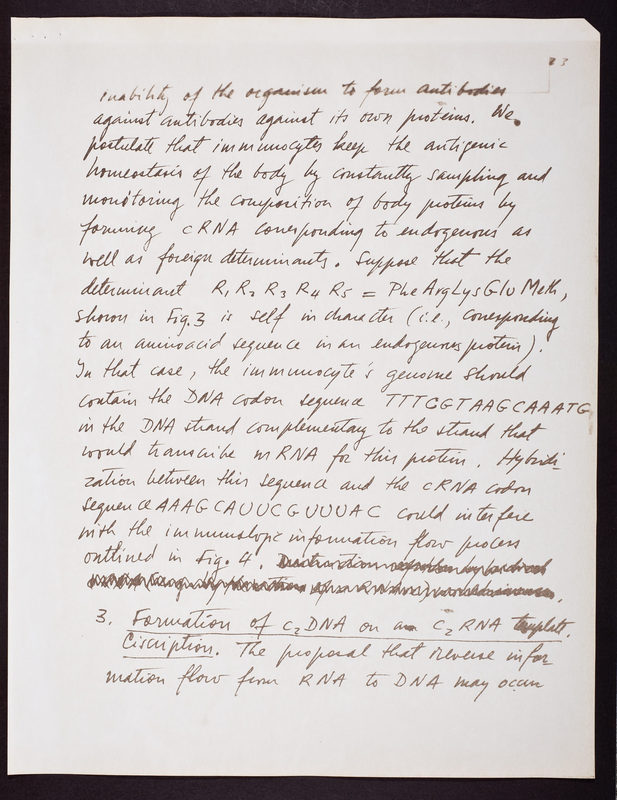 23
inability of the organism to form antibodies
against antibodies against its own proteins. We
postulate that immunocytes keep the antigenic
homeostasis of the body by constantly sampling and
monitoring the composition of body proteins by
forming cRNA corresponding to endogenous as
well as foreign determinants. Suppose that the
determinant R1 R2 R3 R4 R5 = Phe Arg Lys Glu Meth,
shown in Fig. 3 is self in character (i.e., corresponding
to an aminoacid sequence in an endogenous protein).
In that case, the immunocyte's genome should
contain the DNA codon sequence TTTCGTAAGCAAATG
in the DNA strand complementary to the strand that
would transcribe mRNA for this protein. Hybridi-
zation between this sequence and the cRNA codon
sequence AAAGCAUUCGUUUAC could interfere
with the immunologic information flow process
outlined in Fig. 4.
3. Formation of c2DNA on a c2RNA template.
Ciscription. The proposal that reverse infor
mation flow from RNA to DNA may occur